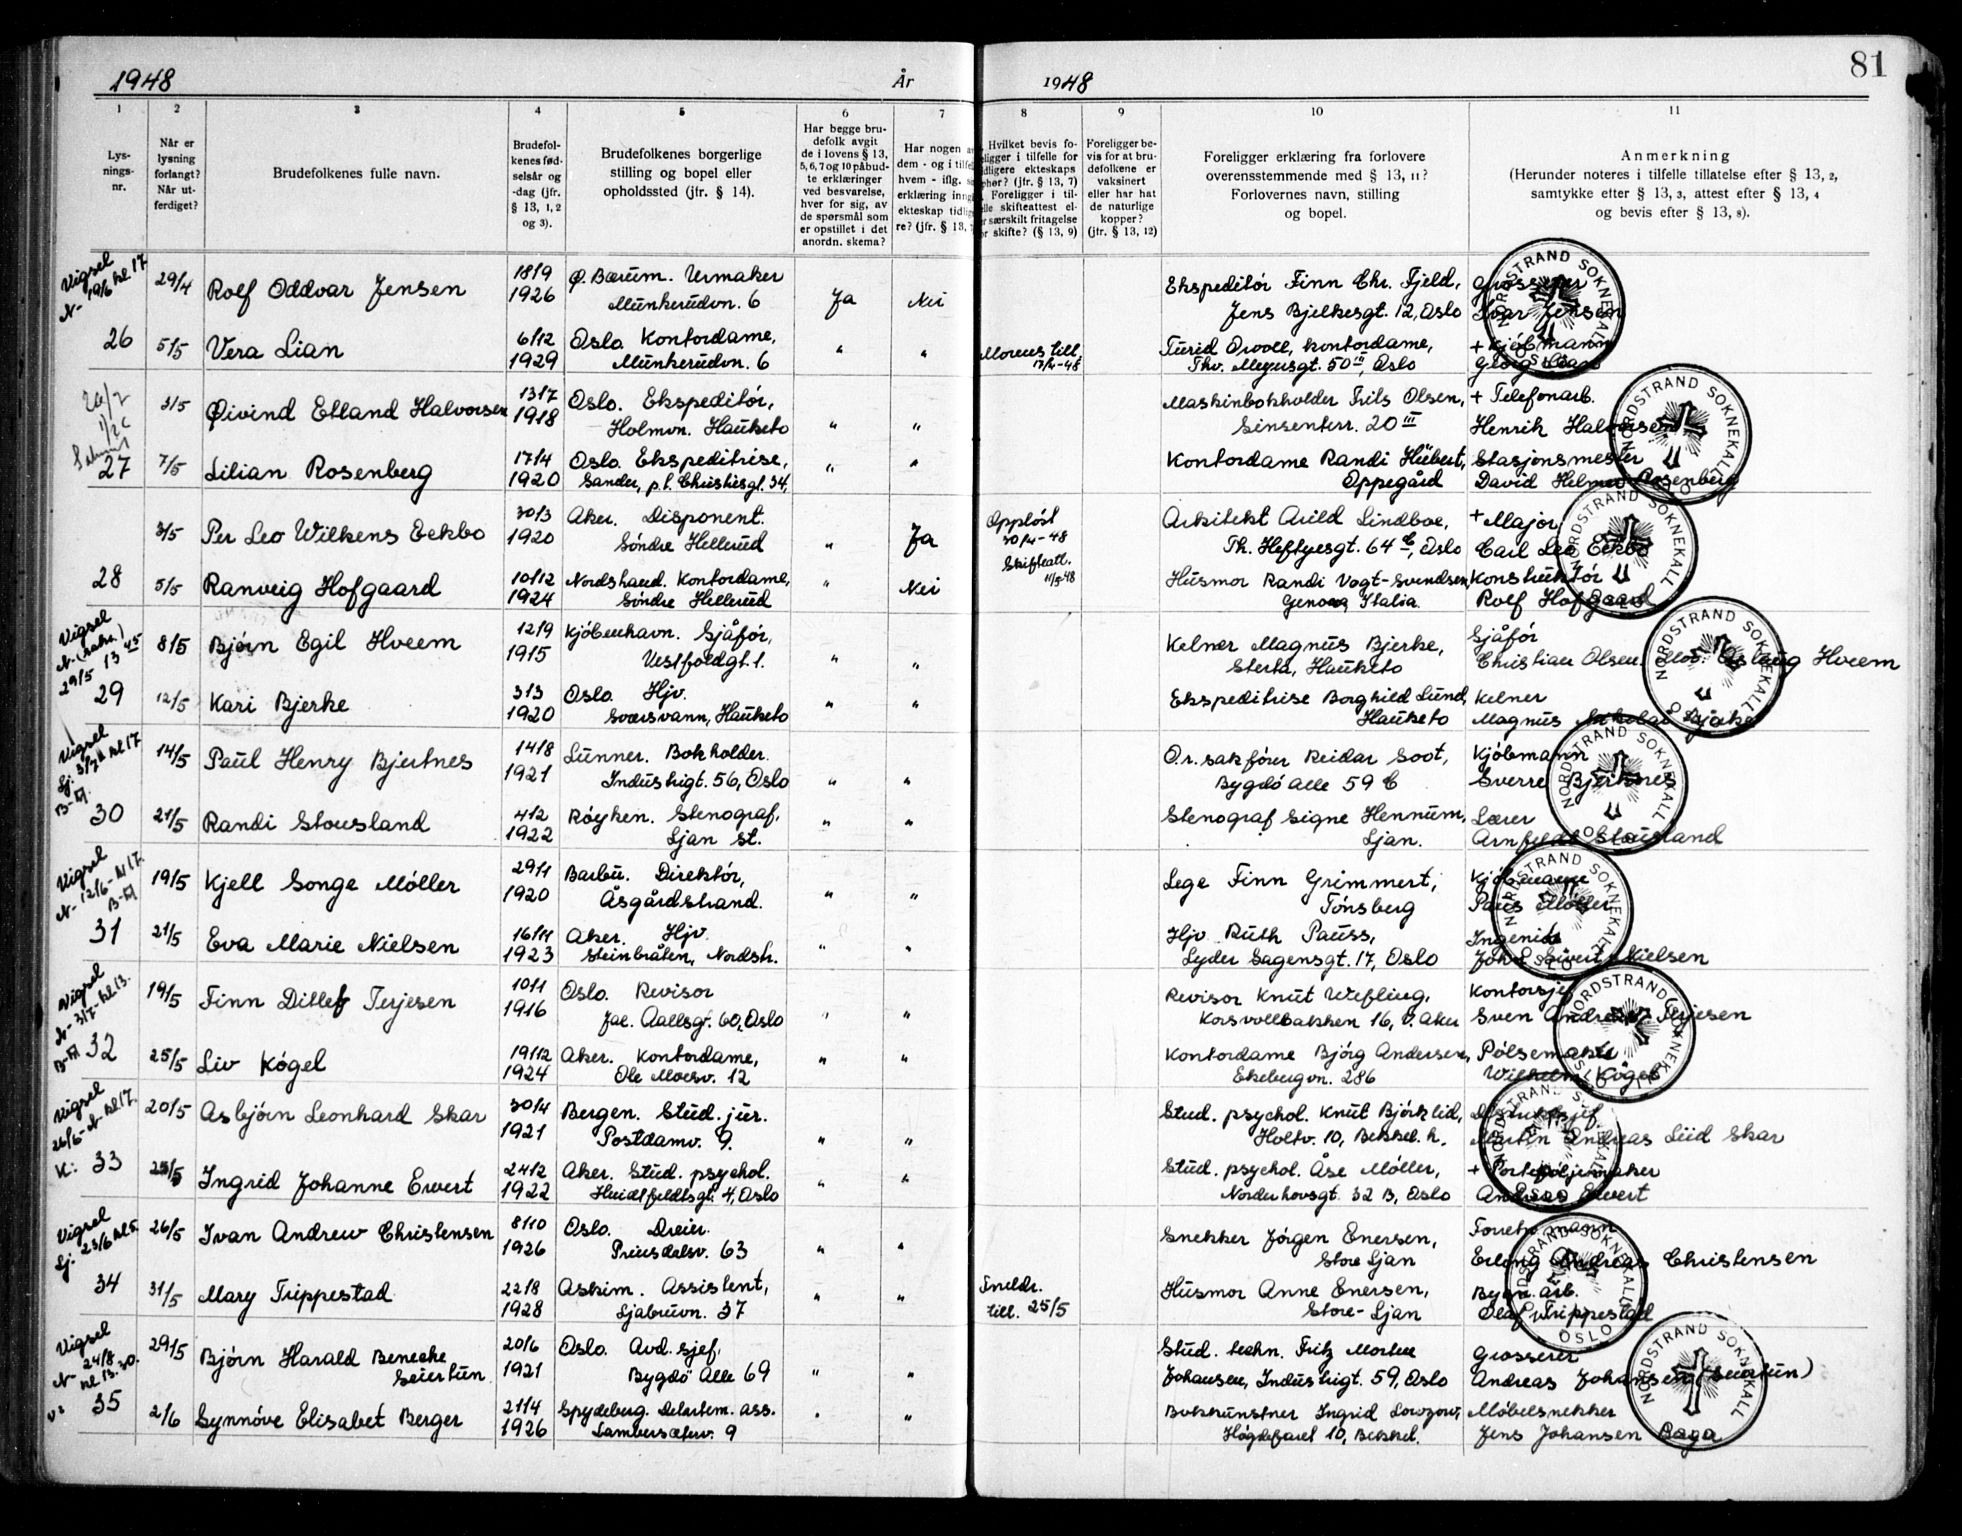 1948 År 1948 81
1 2 3 4 5 6 7 8 9 10 11
Lys-
nings-
nr.
Når er
lysning
forlangt?
Når ut-
ferdiget?
Brudefolkenes fulle navn.
Brudefol-
kenes fød-
selsår og
-dag (jfr.
§ 13, 1, 2
og 3).
Brudefolkenes borgerlige
stilling og bopel eller
opholdssted (jfr. § 14).
Har begge bru-
defolk avgit
de i lovens § 13,
5, 6, 7 og 10 påbud-
te erklæringer
ved besvarelse,
hver for sig, av
de spørsmål som
er opstillet i det
anordn. skema?
Har nogen
dem - og i
hvem - iflg.
erklæring
ekteskap
re? (jfr. § 13,
Hvilket bevis fo-
ligger i tilfelle for
idligere ekteskaps
phør? (jfr. § 13, 7)
Foreligger i til-
elle skifteattest el-
er særskilt fritagelse
or skifte? (§ 13, 9)
Foreligger be-
vis for at bru-
defolkene er
vaksinert
eller har hat
de naturlige
kopper?
(jfr. § 13, 12)
Foreligger erklæring fra forlovere
overensstemmende med § 13, 11?
Forlovernes navn, stilling
og bopel.
Anmerkning
(Herunder noteres i tilfelle tillatelse efter § 13, 2,
samtykke efter § 13, 3, attest efter § 13, 4
og bevis efter § 13, 8).
Vigsel
N- 19/6 kl 17
29/4 Rolf Oddvar Jensen 18/9 1926 Ø. Bærum. Urmaker
Munkerudvn. 6 Ja Nei Ekspeditør Finn Chr. Fjeld, Grosserer
Jens Bjelkesgt. 12, Oslo Ivar Jensen
26 5/5 Vera Lian 6/12 1929 Oslo Kontordame,
Munkerudvn. 6 " " till. 13/4-48 Turid kontordame, + Kjøbmann
Thv. Meyersgt. 50 III, Oslo Georg
3/5 Øivind Etland Halvorsen 13/7 1918 Oslo. Ekspeditør,
Holmvn. Hauketo " " Maskinbokholder Frits Olsen, + Telefonarb.
Sinsenterr. 20 III Henrik Halvorsen
27 7/5 Lilian Rosenberg 17/4 1920 Oslo. Ekspeditrise,
Sander, p.t. Christiesgt. 34, " " Kontordame Randi Hübert, Stasjonsmester
Oppegård David Helmer Rosenberg
3/5 Per Leo Wilkens Eckbo 30/3 1920 Aker. Disponent.
Søndre Hellerud " Ja Oppløst
30/4-48
Skifteatt.
11/5 48 Arkitekt Arild Lindboe, + Major
Th. Heftyesgt. 64 C, Oslo Carl Leo Eckbo
28 5/5 Ranveig Hofgaard 10/12 1924 Nordstrand. Kontordame,
Søndre Hellerud " Nei Husmor Randi Vogt-Svendsen, Konstruktør
Genova, Italia. Rolf Hofgaard
Vigsel
29/5 13 45
8/5 Bjørn Egil Hveem 12/9 1915 Kjøbenhavn. Sjåfør,
Vestfoldgt. 1. " " Kelner Magnus Bjerke, Sjåfør
Sterta, Hauketo Christian Olsen. Mor: Aslaug Hveem
29 12/5 Kari Bjerke 3/3 1920 Oslo. Hjv.
Sværsvann, Hauketo " " Ekspeditrise Borghild Lund, Kelner
Hauketo Magnus Nikolai Bjerke
Vigsel
Sj. 3/7 kl 17
14/5 Paul Henry Bjertnes 14/8 1921 Lunner. Bokholder.
Industrigt. 56, Oslo " " O.r. sakfører Reidar Soot, Kjøbmann
Bygdø alle 59 C Sverre Bjertnes
30 21/5 Randi Stousland 4/12 1922 Røyken. Stenograf,
Ljan st. " " Stenograf Signe Hennum, Lærer
Ljan. Arnfeldt Stousland
Vigsel
N- 12/6- kl 17.
19/5 Kjell Songe Møller 29/1 1920 Barbu. Direktør,
Åsgårdstrand. " " Lege Finn Grimmert, Kjøbmann
Tønsberg Paus Møller
31 21/5 Eva Marie Nielsen 16/11 1923 Aker. Hjv.
Steinbråten, Nordstr. " " Hjv Ruth Pauss, Ingeniør
Lyder Sagensgt. 17, Oslo John Sivert Nielsen
Vigsel
N- 3/7- kl 13.
19/5 Finn Ditlef Terjesen 10/1 1916 Oslo. Revisor
Jac. Aallsgt. 60, Oslo " " Revisor Knut Wefling, Kontorsjef
Korsvollbakken 16, V. Aker Sven Andreas Terjesen
32 25/5 Liv Køgel 19/12 1924 Aker. Kontordame,
Ole Moesv. 12 " " Kontordame Bjørg Andersen, Pølsemaker
Ekebergvn. 286 Wilhelm Køgel
Vigsel
26/6-N kl 17.
20/5 Asbjørn Leonhard Skar 30/4 1921 Bergen. Stud. jur.
Postdamv. 9. " " Stud. psychol. Knut Bjørklid, Distriktsjef.
Holtv. 10, Bekkel. h. Martin Andreas Liid Skar
33 25/5 Ingrid Johanne Ewert 24/2 1922 Aker. Stud. psychol.
Heidtfeldtsgt. 4, Oslo " " Stud. psychol. Åse Møller, + Porteføljemaker
Norderhovsgt. 32 B, Oslo Andreas Ewert
Vigsel
Sj. 23/6 kl 5.
26/5 Ivan Andrew Christensen 8/10 1926 Oslo. Dreier.
Prinsdalsv. 63 " " Snekker Jørgen Enersen, Forretn.mann
Store Ljan Erling Andreas Christensen
34 31/5 Mary Trippestad 22/8 1928 Askim. Assistent,
Ljabruvn. 37 " " Foreldr.
till. 25/5 Husmor Anne Enersen, Bygn. arb.
Store-Ljan Olaf Trippestad
Vigsel
N- 24/8
kl 13.30.
29/5 Bjørn Harald Benecke
Seiertun 20/6 1921 Oslo. Avd. sjef,
Bygdö Alle 69 " " Stud. techn. Fritz Morten Grosserer
Johansen, Industrigt. 59, Oslo Andreas Johansen (Seiertun)
35 2/6 Synnøve Elisabet Berger 21/4 1926 Spydeberg. Detartem. ass.
Lambersæterv. 9 " " Bokkunstner Ingrid Lowzow, Møbelsnekker
Høgdefaret 10, Bekkel. Jens Johansen Baga
NORDSTRAND SOKNEKALL OSLO
NORDSTRAND SOKNEKALL OSLO
NORDSTRAND SOKNEKALL OSLO
NORDSTRAND SOKNEKALL OSLO
NORDSTRAND SOKNEKALL OSLO
NORDSTRAND SOKNEKALL OSLO
NORDSTRAND SOKNEKALL OSLO
NORDSTRAND SOKNEKALL OSLO
NORDSTRAND SOKNEKALL OSLO
NORDSTRAND SOKNEKALL